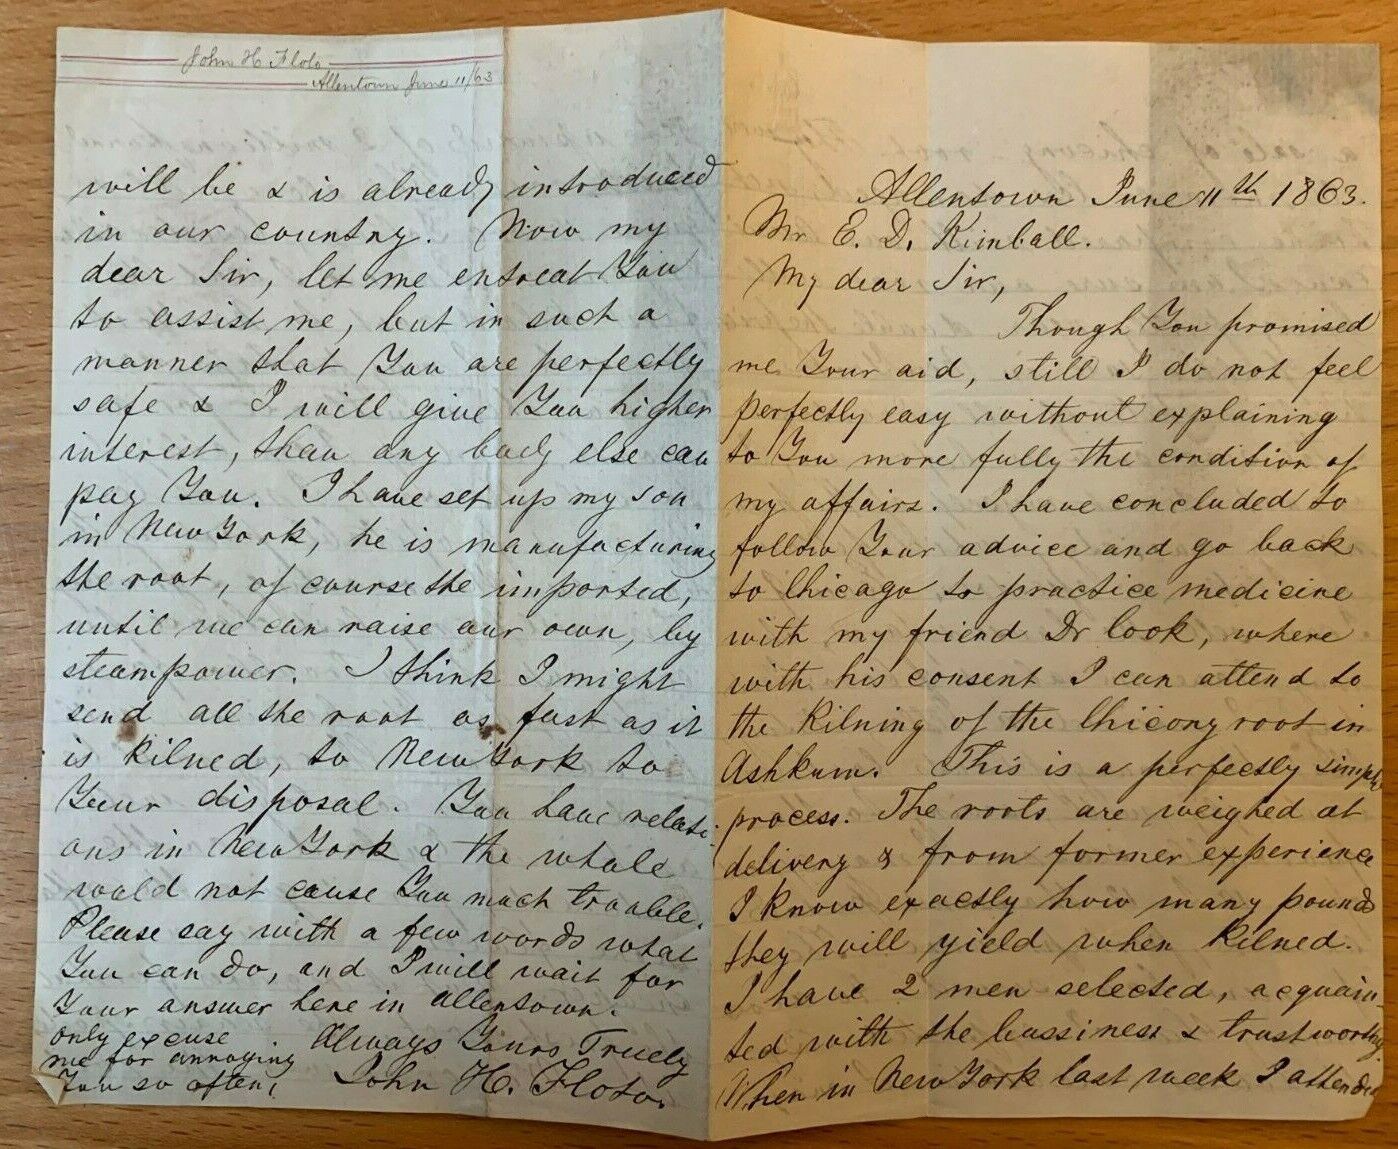 John H Floto
Allentown June 11/63
will be & is already introduced
in our country. Now my
dear Sir, let me entreat You
to assist me, but in such a
manner that You are perfectly
safe & I will give You higher
interest, than any body else can
pay You. I have set up my son
in New York, he is manufacturing
the root, of course the imported,
until we can raise our own, by
steampower. I think I might
send all the root as fast as it
is kilned, to New York to
Your disposal. You have relati-
ons in New York & the whole
would not cause You much trouble.
Please say with a few words what
You can do, and I will wait for
Your answer here in Allentown.
only excuse
me for annoying
You so often,
Always Yours Truely
John H. Floto.
Allentown June 11th 1863.
Mr E. D. Kimball.
My dear Sir,
Though You promised
me Your aid, still I do not feel
perfectly easy without explaining
to You more fully the condition of
my affairs. I have concluded to
follow Your advice and go back
to Chicago to practice medicine
with my friend Dr Cook, where
with his consent I can attend to
the Kilning of the Chicory root in
Ashkum. This is a perfectly simple
process. The roots are weighed at
delivery & from former experience
I know exactly how many pounds
they will yield when kilned.
I have 2 men selected, acquain
ted with the bussiness & trustworthy.
When in New York last week I attended